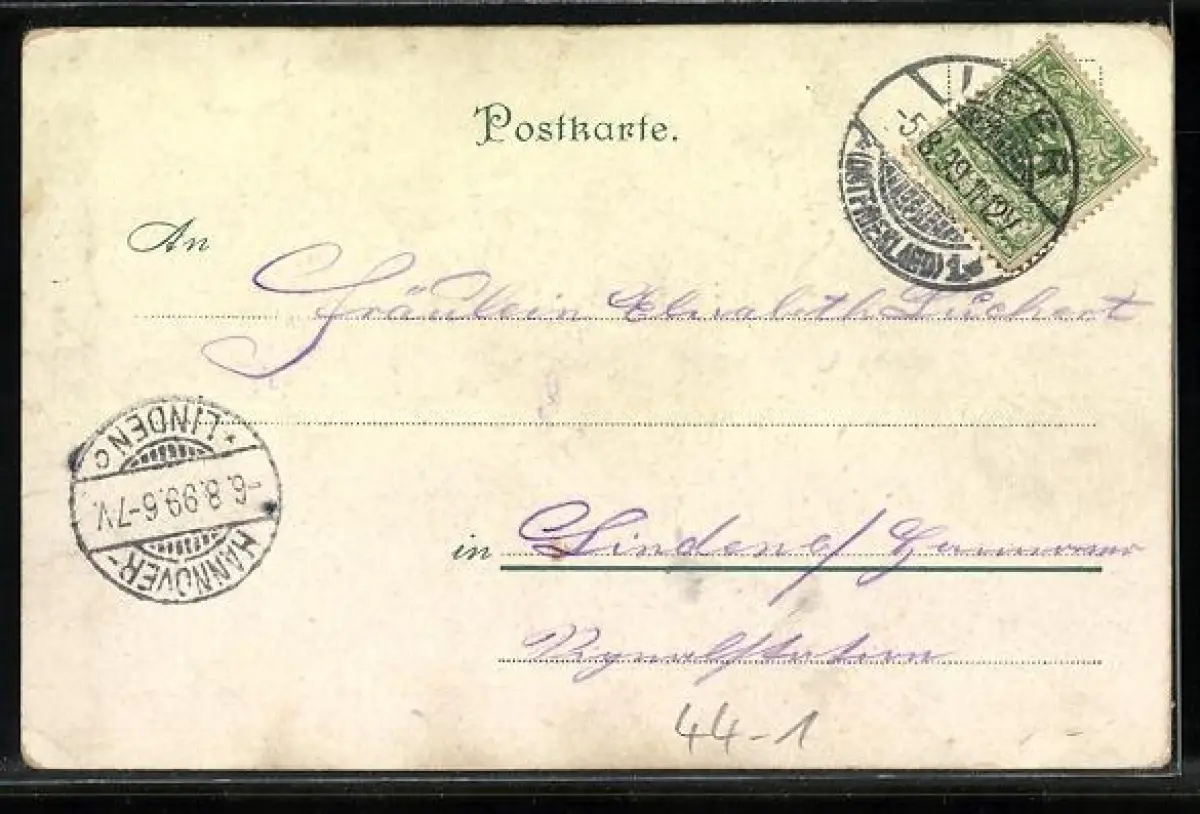 Postkarte.
LEER
(OSTFRIESLAND) 1.
-5.8.99. 11-12V.
An
Fräulein Elisabeth
in Linden a/ Hannover
HANNOVER-LINDEN C
-6.8.99.6-7V.
44-1